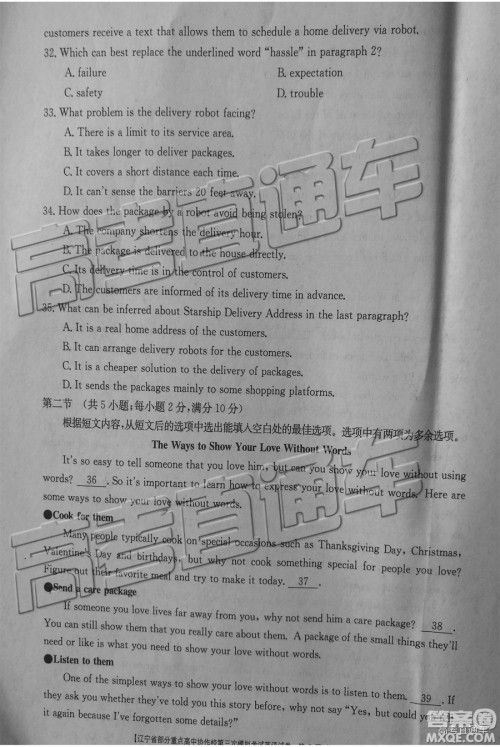 customers receive a text that allows them to schedule a home delivery via robot.
32. Which can best replace the underlined word “hassle” in paragraph 2?
A. failure B. expectation
C. safety D. trouble
33. What problem is the delivery robot facing?
A. There is a limit to its service area.
B. It takes longer to deliver packages.
C. It covers a short distance each time.
D. It can't sense the barriers 20 feet away.
34. How does the package by a robot avoid being stolen?
A. The company shortens the delivery hour.
B. The package is delivered to the house directly.
C. Its delivery time is in the control of customers.
D. The customers are informed of its delivery time in advance.
35. What can be inferred about Starship Delivery Address in the last paragraph?
A. It is a real home address of the customers.
B. It can arrange delivery robots for the customers.
C. It is a cheaper solution to the delivery of packages.
D. It sends the packages mainly to some shopping platforms.
第二节 (共5小题;每小题2分,满分10分)
根据短文内容,从短文后的选项中选出能填入空白处的最佳选项。选项中有两项为多余选项。
The Ways to Show Your Love Without Words
It's so easy to tell someone that you love him, but can you show your love without using
words? 36 . So it's important to learn how to express your love without words. Here are
some ways to show your love without words.
●Cook for them
Many people typically cook on special occasions such as Thanksgiving Day, Christmas,
Valentine's Day and birthdays, but why not cook something special for people you love?
Figure out their favorite meal and try to make it today. 37 .
●Send a care package
If someone you love lives far away from you, why not send him a care package? 38 .
You can still show them that you really care about them. A package of the small things they'll
need or like is what you need to show your love without words.
●Listen to them
One of the simplest ways to show your love without words is to listen to them. 39 . If
they ask you whether they've told you this story before, why not say “Yes, but could you tell
it again because I've forgotten some details”?
高考直通车
高考直通车
答案圈
MXQE.COM